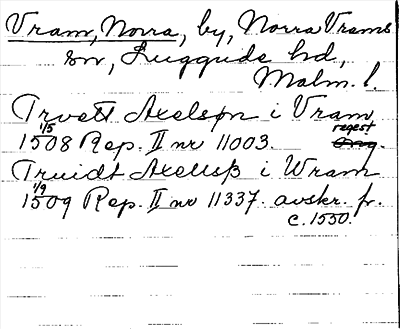 Vram, Norra, by, Norra Vrams
sn, Luggude hd,
Malm. l.
Truett Axelsøn i Vram
1/5 1508 Rep. II nr 11003. regest
Truidt Axelsß i Wram
1/9 1509 Rep. II nr 11337. avskr. fr.
c. 1550.